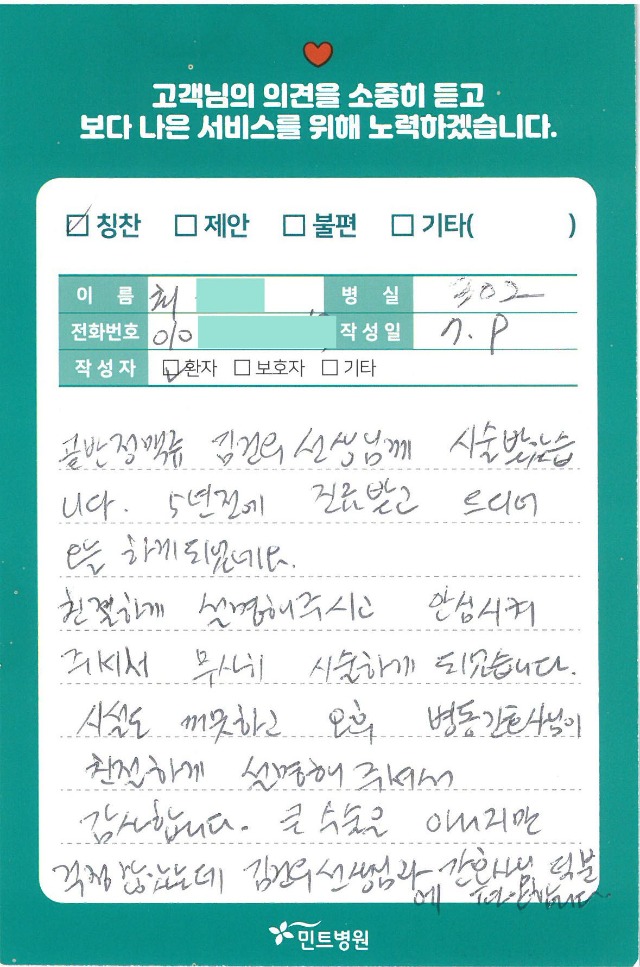 고객님의 의견을 소중히 듣고
보다 나은 서비스를 위해 노력하겠습니다.
칭찬 제안 불편 기타( )
이 름 최 병 실 302
전화번호 010 작성일 7. 8
작성자 환자 보호자 기타
골반정맥류 김건우선생님께 시술받았습
니다. 5년전에 진료받고 드디어
오늘 하게되었네요.
친절하게 설명해주시고 안심시켜
주셔서 무사히 시술하게 되었습니다.
시설도 깨끗하고 오후 병동간호사님이
친절하게 설명해주셔서
감사합니다. 큰 수술은 아니지만
걱정많았는데 김건우선생님과 간호사님 덕분
에
민트병원